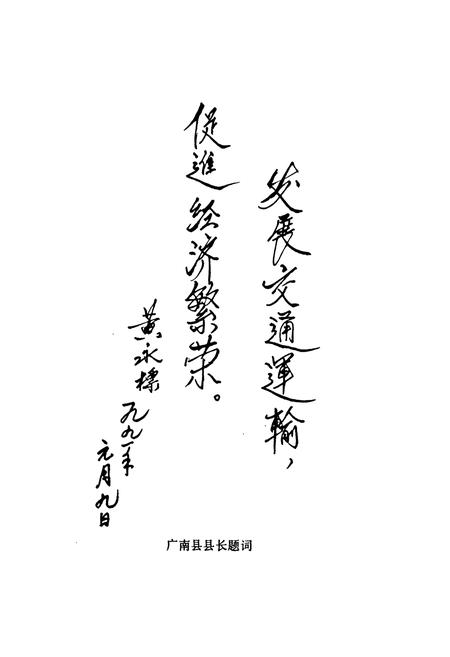 发展交通運輸，
促進经济繁荣。
黄永標
一九九一年
元月九日
广南县县长题词